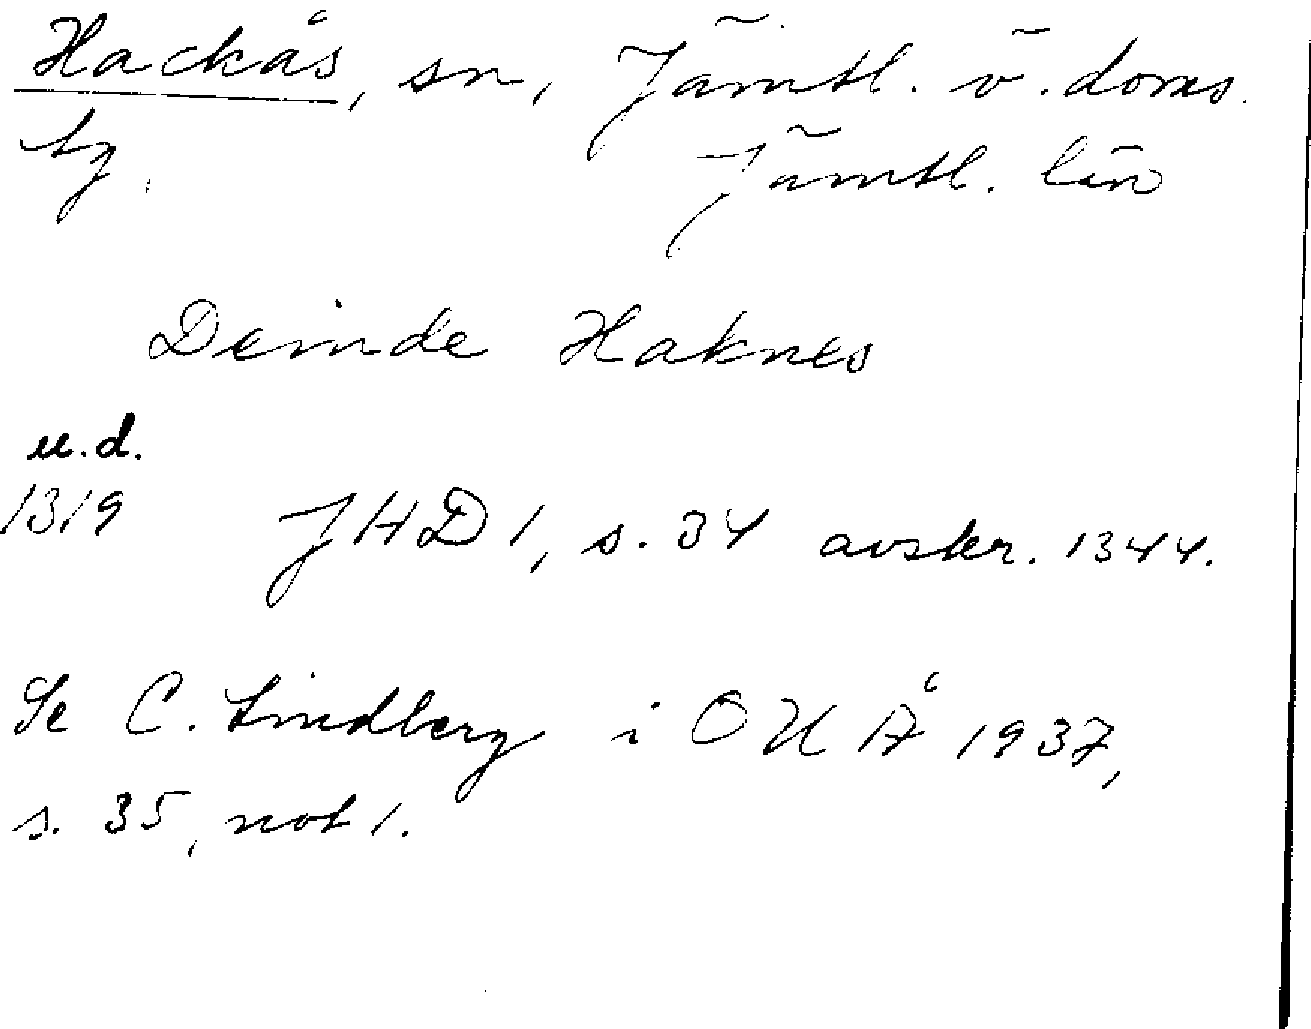 Hackås, sn, Jämtl. v. doms.
tg. Jämtl. län
Deinde Haknes
u.d.
1319 JHD 1, s. 34 avskr. 1344.
Se C. Lindberg i ONÅ 1937,
s. 35, not 1.